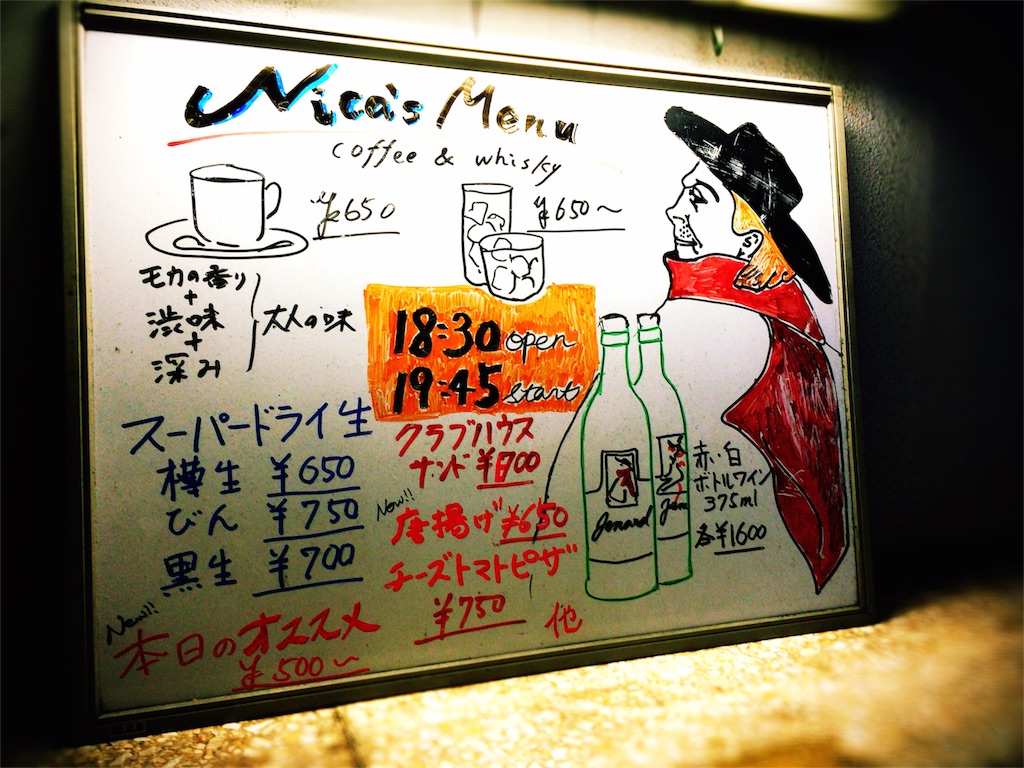 Nica's Menu
coffee & whisky
¥650
¥650～
モカの香り
+
渋味
+
深み
大人の味
18:30 open
19:45 start
スーパードライ生
樽生 ¥650
びん ¥750
黒生 ¥700
New!!
本日のオススメ
¥500～
クラブハウス
サンド ¥700
New!!
唐揚げ ¥650
チーズトマトピザ
¥750
他
赤・白
ボトルワイン
375ml
各¥1600